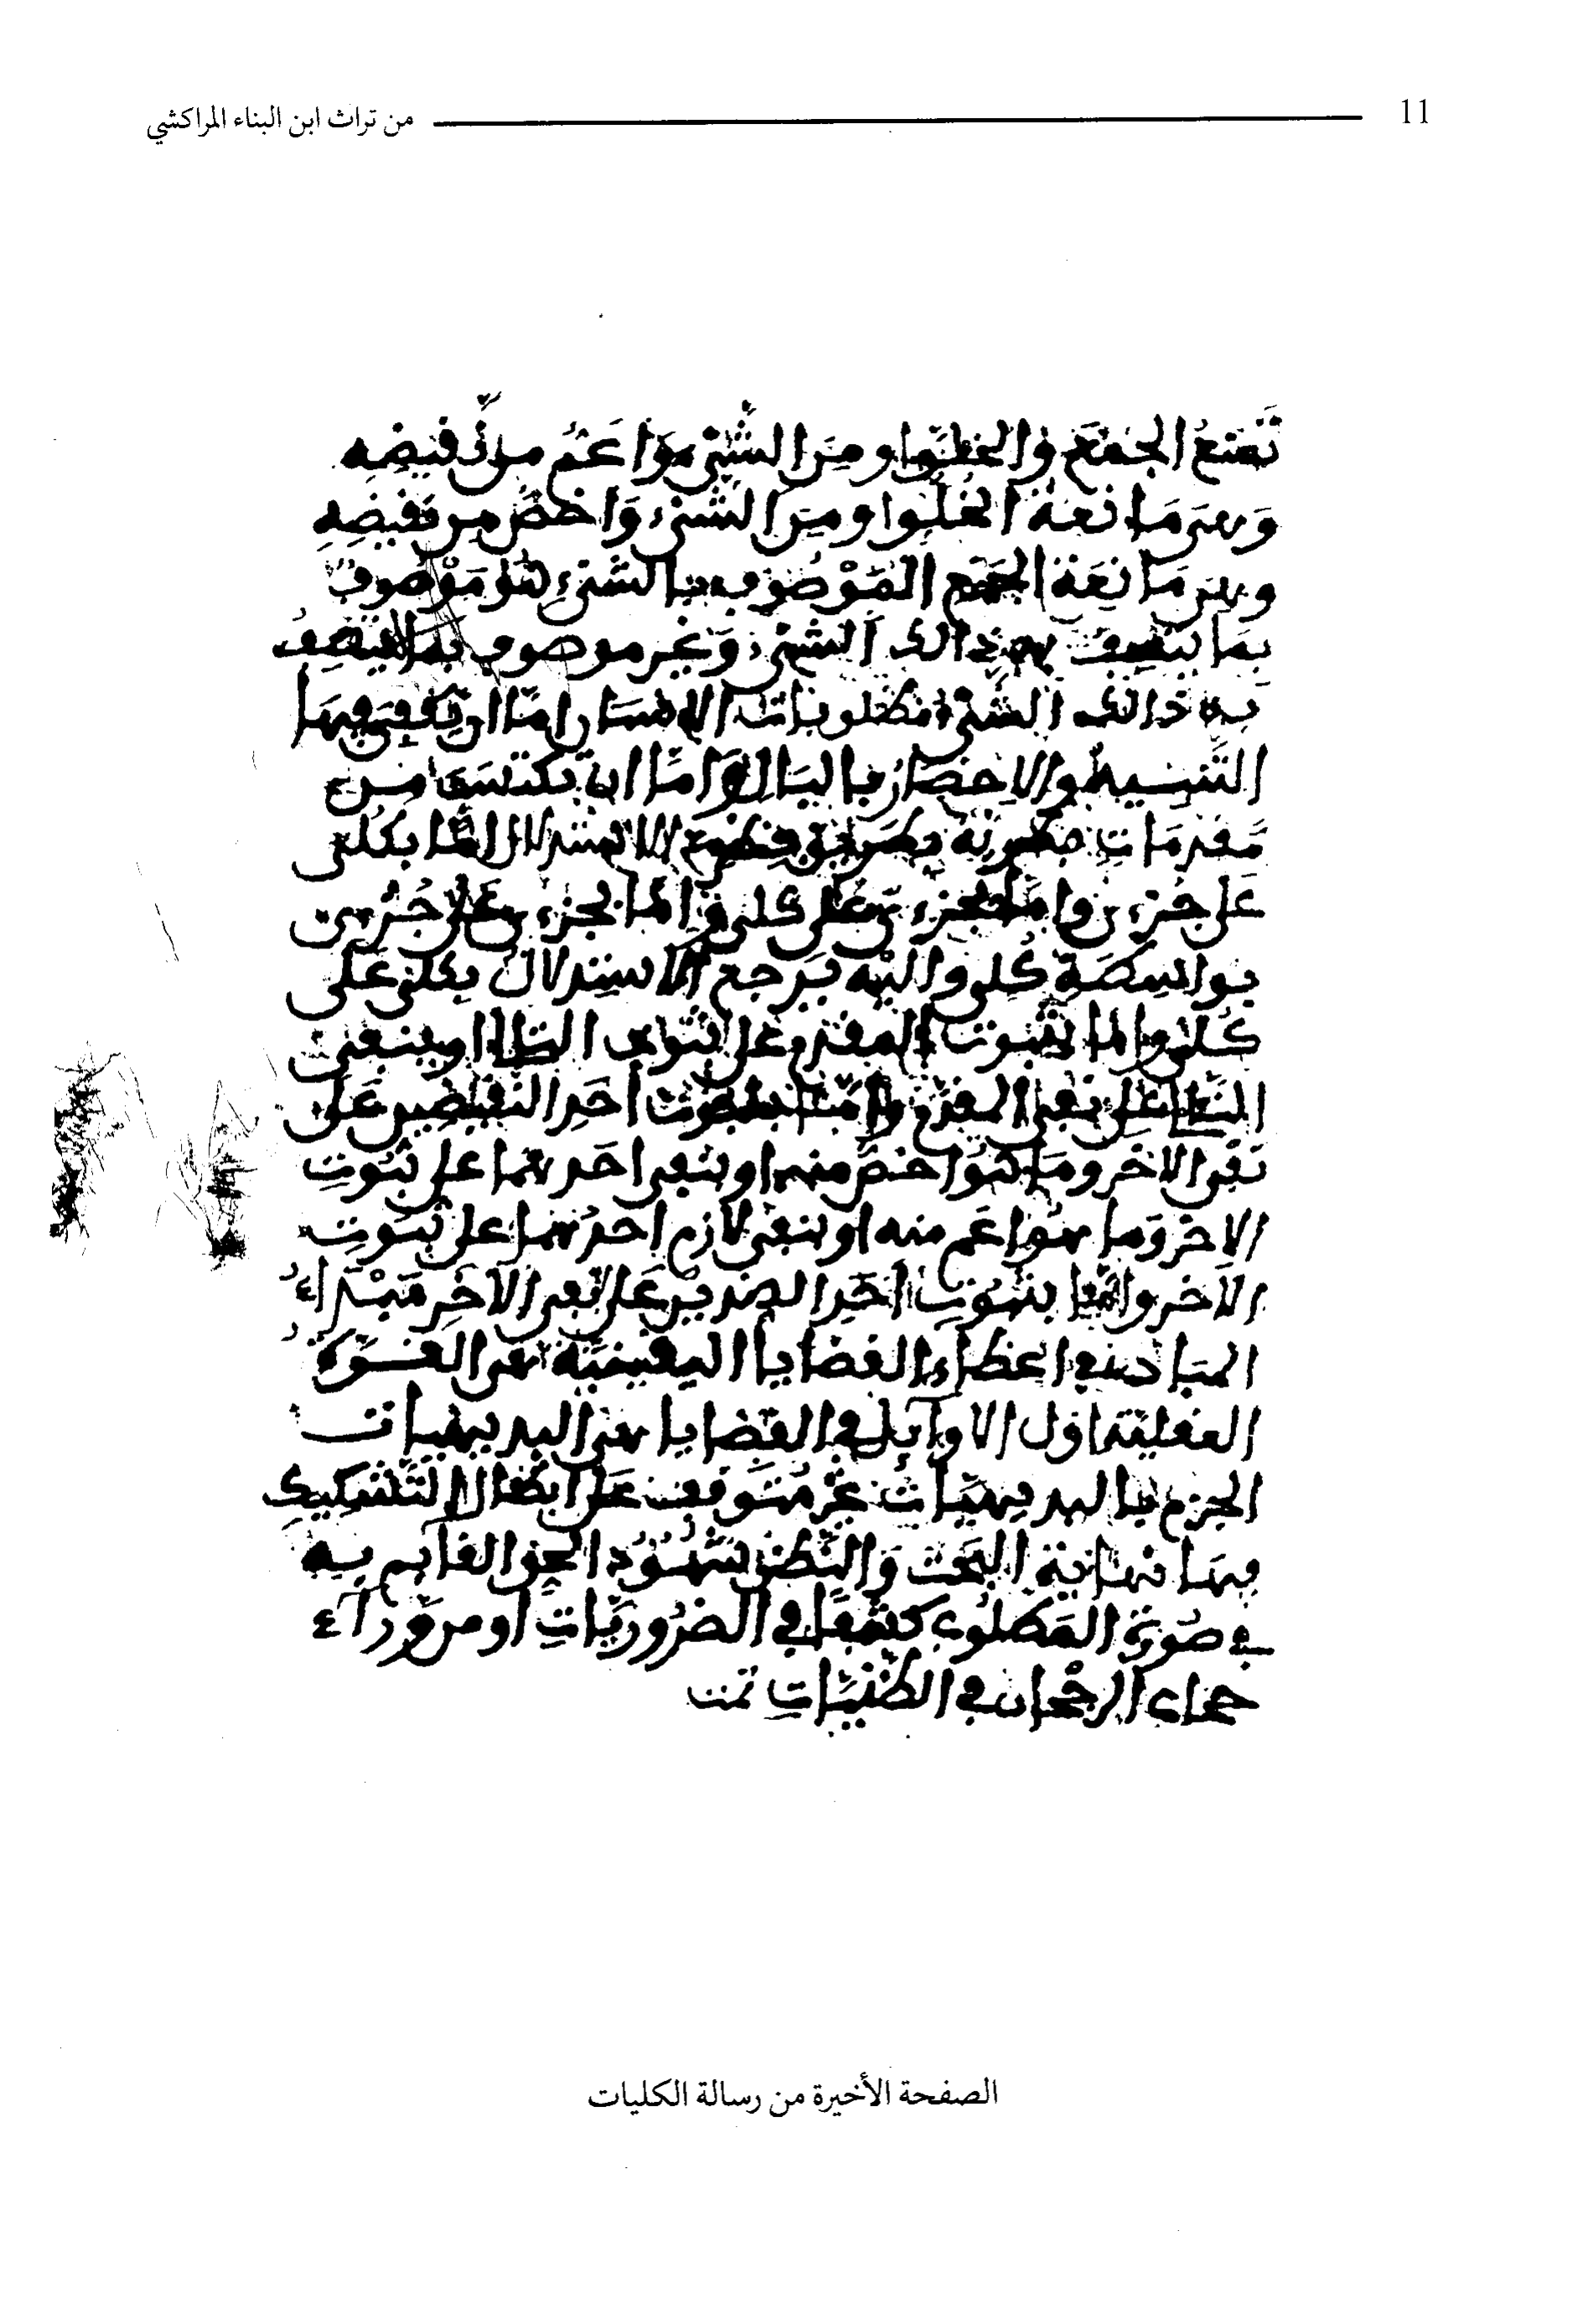 11 من تراث ابن البناء المراكشي
تمنع الجمع والخلو او من الشيء واعم من نقيضه
وهي مانعة الخلو او من الشيء واخص من نقيضه
وهي مانعة الجمع الموصوف بالشيء هو موصوف
بما يتصف به ذالك الشيء وغير موصوف بما لا يتصف
به ذالك الشيء مطلوبات اما ان يكفي فيها
التنبيه والاحضار بالبال واما ان تكتسب من
مقدمات بطريق الاستدلال اما بكلي
على جزءي واما بجزءي على كلي واما بجزءي على جزءي
بواسطة كلي واليه يرجع الاستدلال بكلي على
كلي واما بثبوت المقدم على ثبوت التالي او بنفي
التالي على نفي المقدم واما بثبوت احد النقيضين على
نفي الاخر وما هو اخص منه او بنفي احدهما على ثبوت
الاخر وما هو اعم منه او بنفي لازم احدهما على ثبوت
الاخر واما بثبوت احد الضدين على نفي الاخر مبدأ
المبادئ في اعطاء القضايا اليقينية هي القوة
العقلية اول الاوايل في القضايا هي البديهيات
الجزم بالبديهيات غير متوقف على ابطال التشكيك
فيها نهاية البحث والنظر شهود الحق القايم به
في صورة المطلوب كشفا في الضروريات او من وراء
حجاب الرجحان في الظنيات تمت
الصفحة الأخيرة من رسالة الكليات